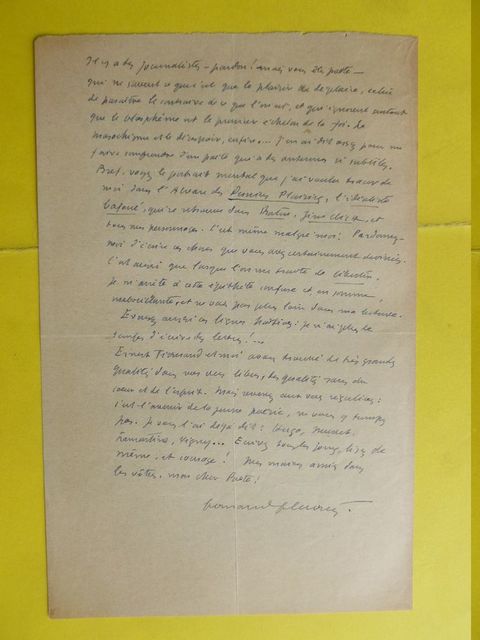 Il y a des journalistes – pardon ! mais vous êtes poète –
qui ne savent ce que c'est que le plaisir de déplaire, celui
de paraître le contraire de ce que l'on est, et qui ignorent surtout
que le blasphème est le premier échelon de la foi. Le
masochisme et le désespoir, enfin.... J'en ai dit assez pour me
faire comprendre d'un poète qui a des antennes si subtiles.
Bref, voyez le portrait mental que j'ai voulu tracer de
moi dans l'Alvare des Derniers Plaisirs, l'idéaliste
bafoué, qui se retrouve dans
tous mes personnages. C'est même malgré moi ! Pardonnez-
moi d'écrire ces choses que vous avez certainement devinées.
C'est ainsi que lorsque l'on me traite de libertin,
je m'arrête à cette épithète confuse et, en somme,
et ne vais pas plus loin dans ma lecture.
Excusez aussi ces lignes hâtives : je n'ai plus le
temps d'écrire des lettres !...
Ernest et moi avons trouvé de très grandes
qualités dans vos vers libres, des qualités rares du
cœur et de l'esprit. Mais revenez aux vers réguliers :
c'est l'avenir de la jeune poésie, ne vous y trompez
pas. Je vous l'ai déjà dit : Hugo, Musset,
Lamartine, Vigny... Ecrivez tous les jours, lisez de
même, et courage ! Mes mains amies dans
les vôtres, mon cher Poète !